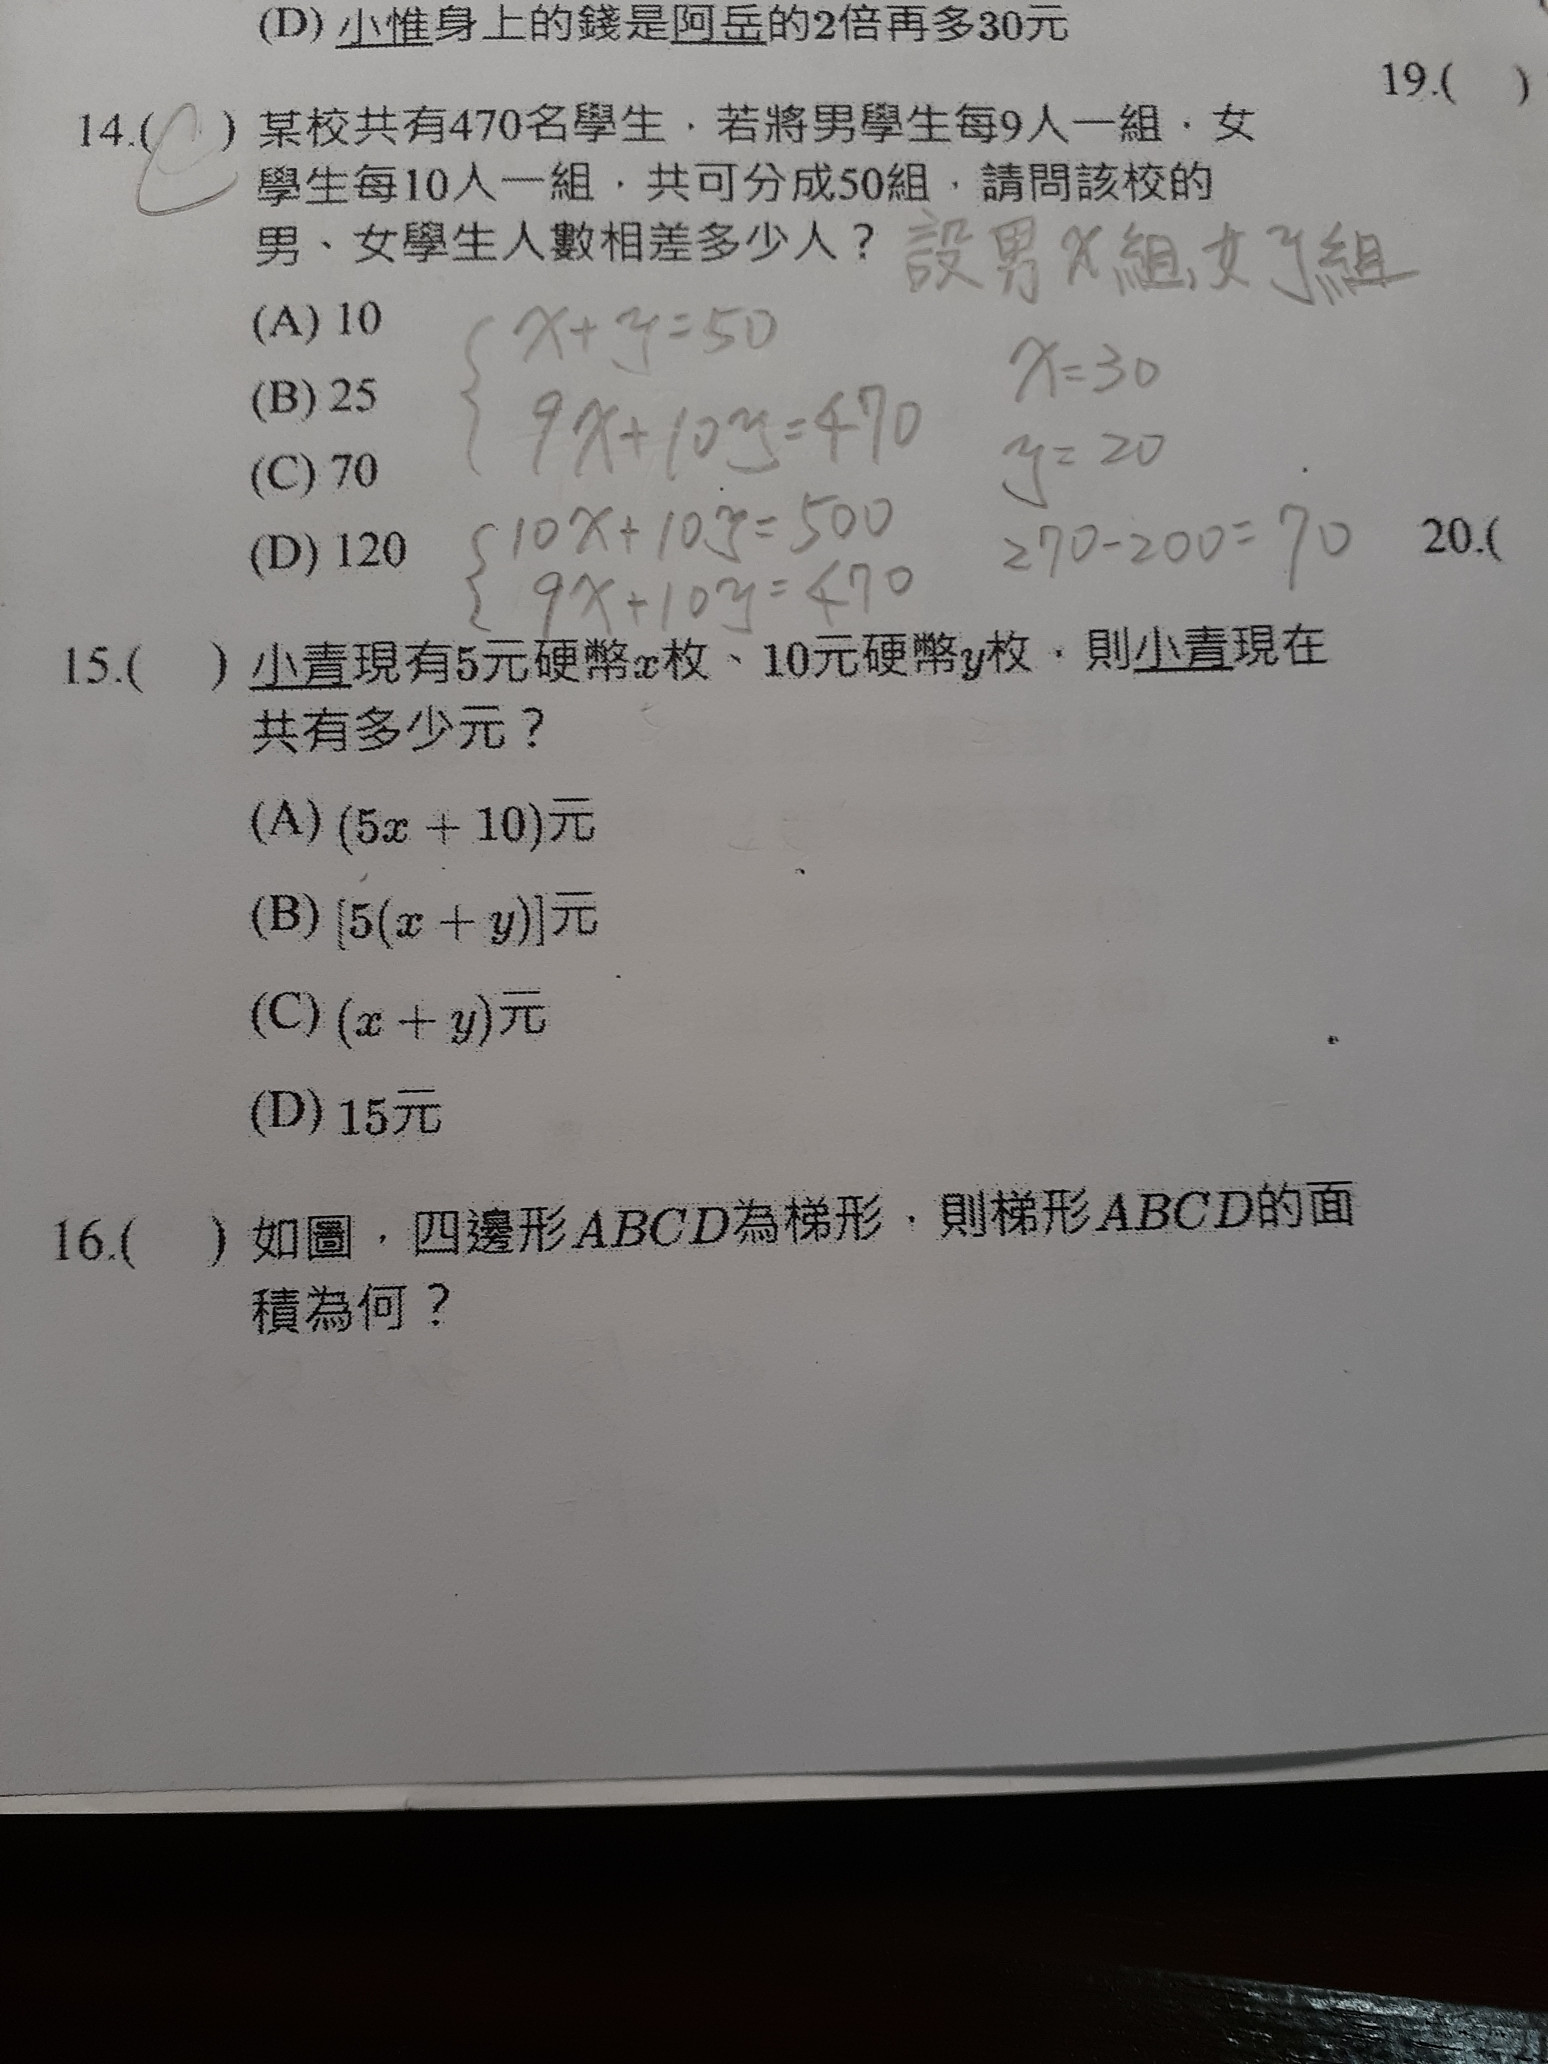 (D) 小惟身上的錢是阿岳的2倍再多30元
19.( )
14.( C ) 某校共有470名學生，若將男學生每9人一組，女
學生每10人一組，共可分成50組，請問該校的
男、女學生人數相差多少人？ 設男x組,女y組
(A) 10
(B) 25
(C) 70
(D) 120
x+y=50
9x+10y=470
10x+10y=500
9x+10y=470
x=30
y=20
270-200=70
20.(
15.( ) 小青現有5元硬幣x枚、10元硬幣y枚，則小青現在
共有多少元？
(A) (5x + 10)元
(B) [5(x + y)]元
(C) (x + y)元
(D) 15元
16.( ) 如圖，四邊形ABCD為梯形，則梯形ABCD的面
積為何？